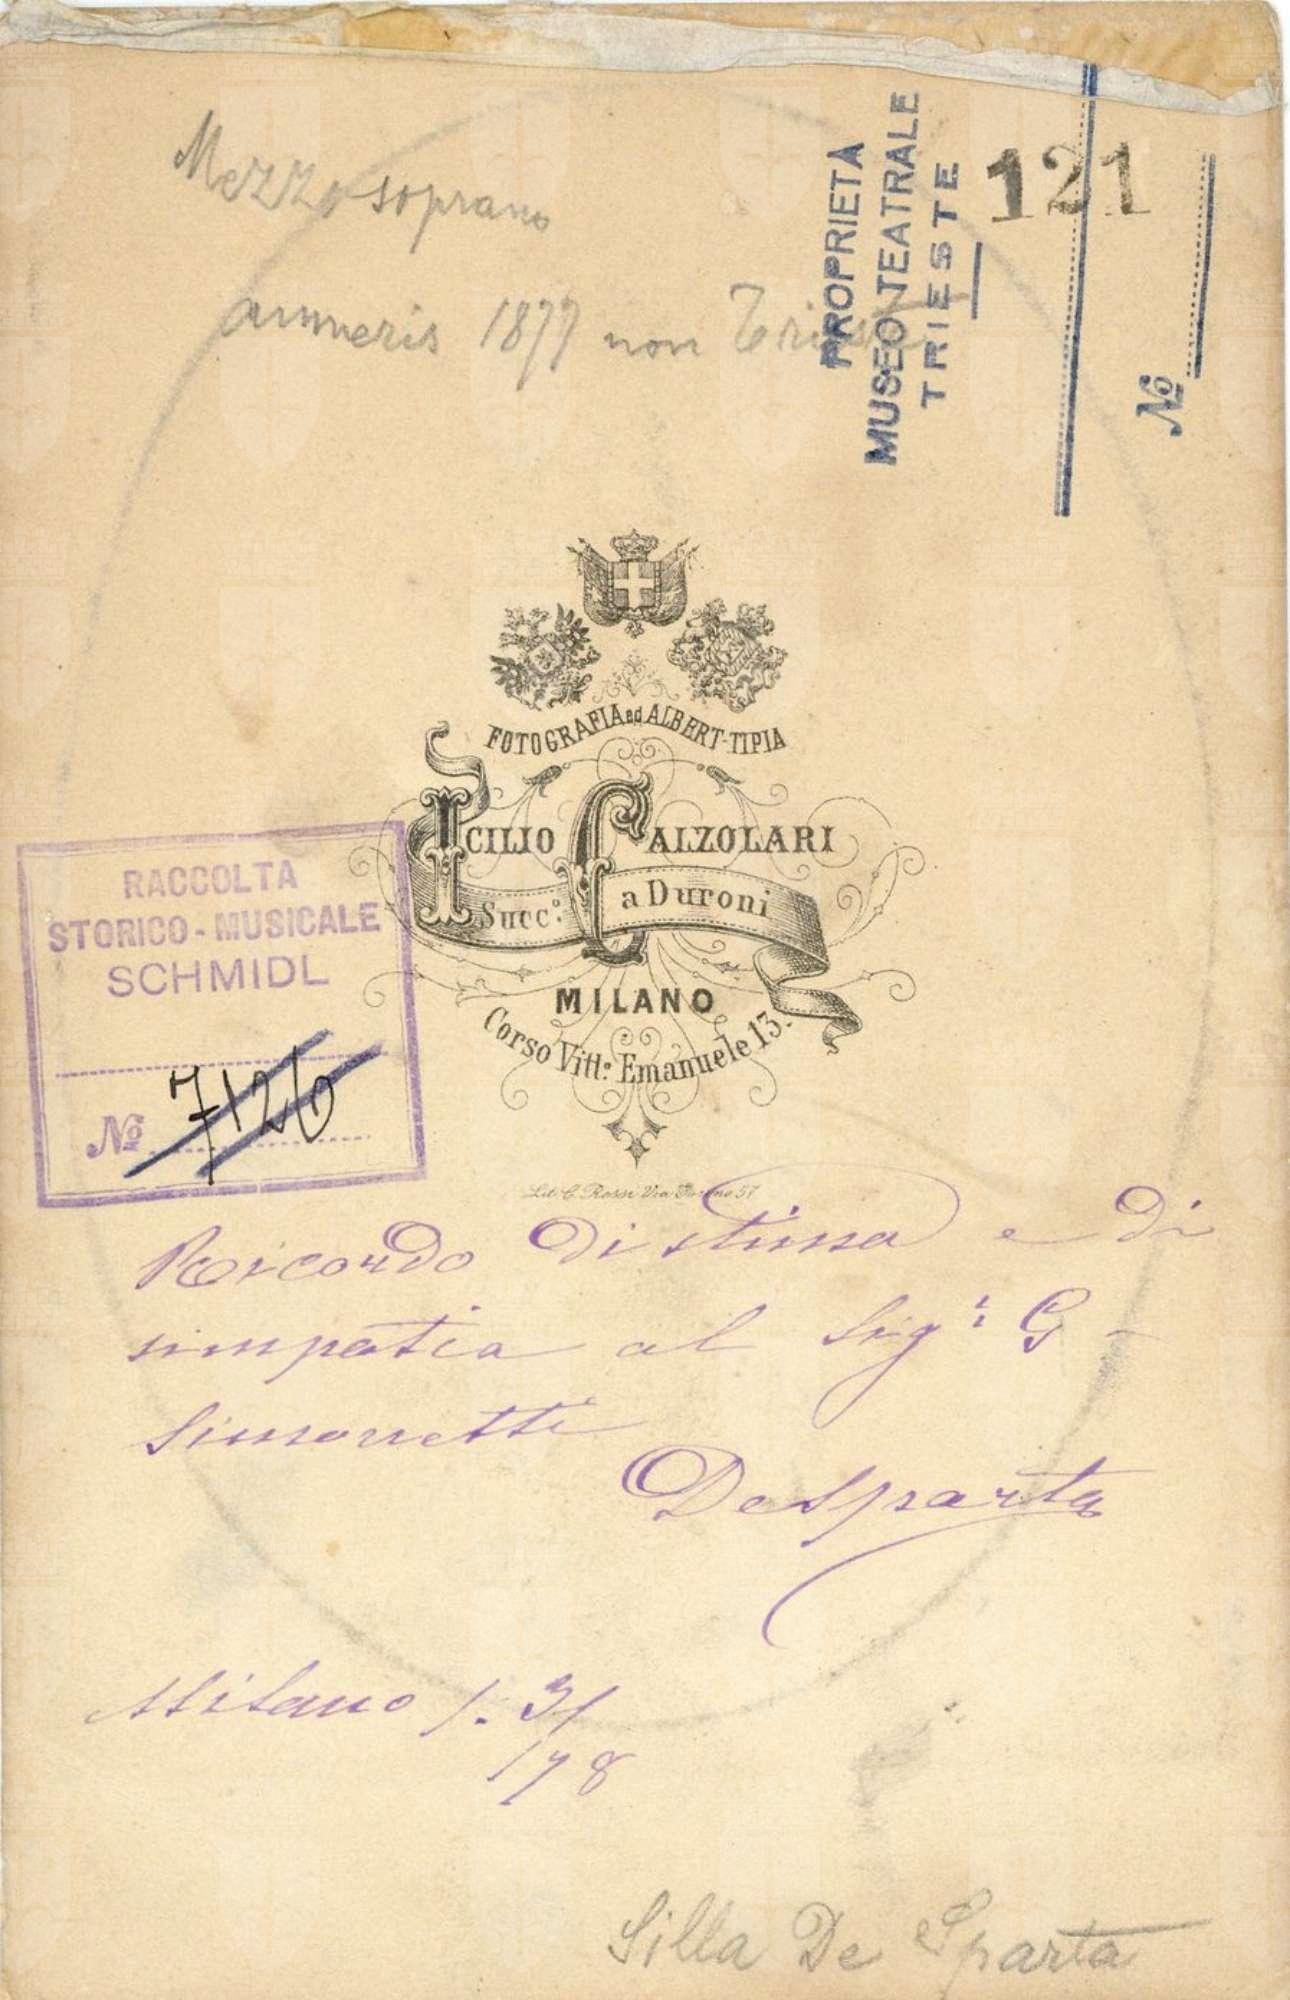 Mezzo soprano
amneris 1877 non Trieste
PROPRIETÀ
MUSEO TEATRALE
TRIESTE
121
No
FOTOGRAFIA ed ALBERT-TIPIA
ICILIO CALZOLARI
Succ.º a Duroni
MILANO
Corso Vitt.º Emanuele 13.
RACCOLTA
STORICO-MUSICALE
SCHMIDL
No 7126
Lit. C. Rossi Via Torino 57
Ricordo di stima e di
simpatia al Sig.r G
Simonetti
De Sparta
Milano 1. 3/
/78
Silla De Sparta